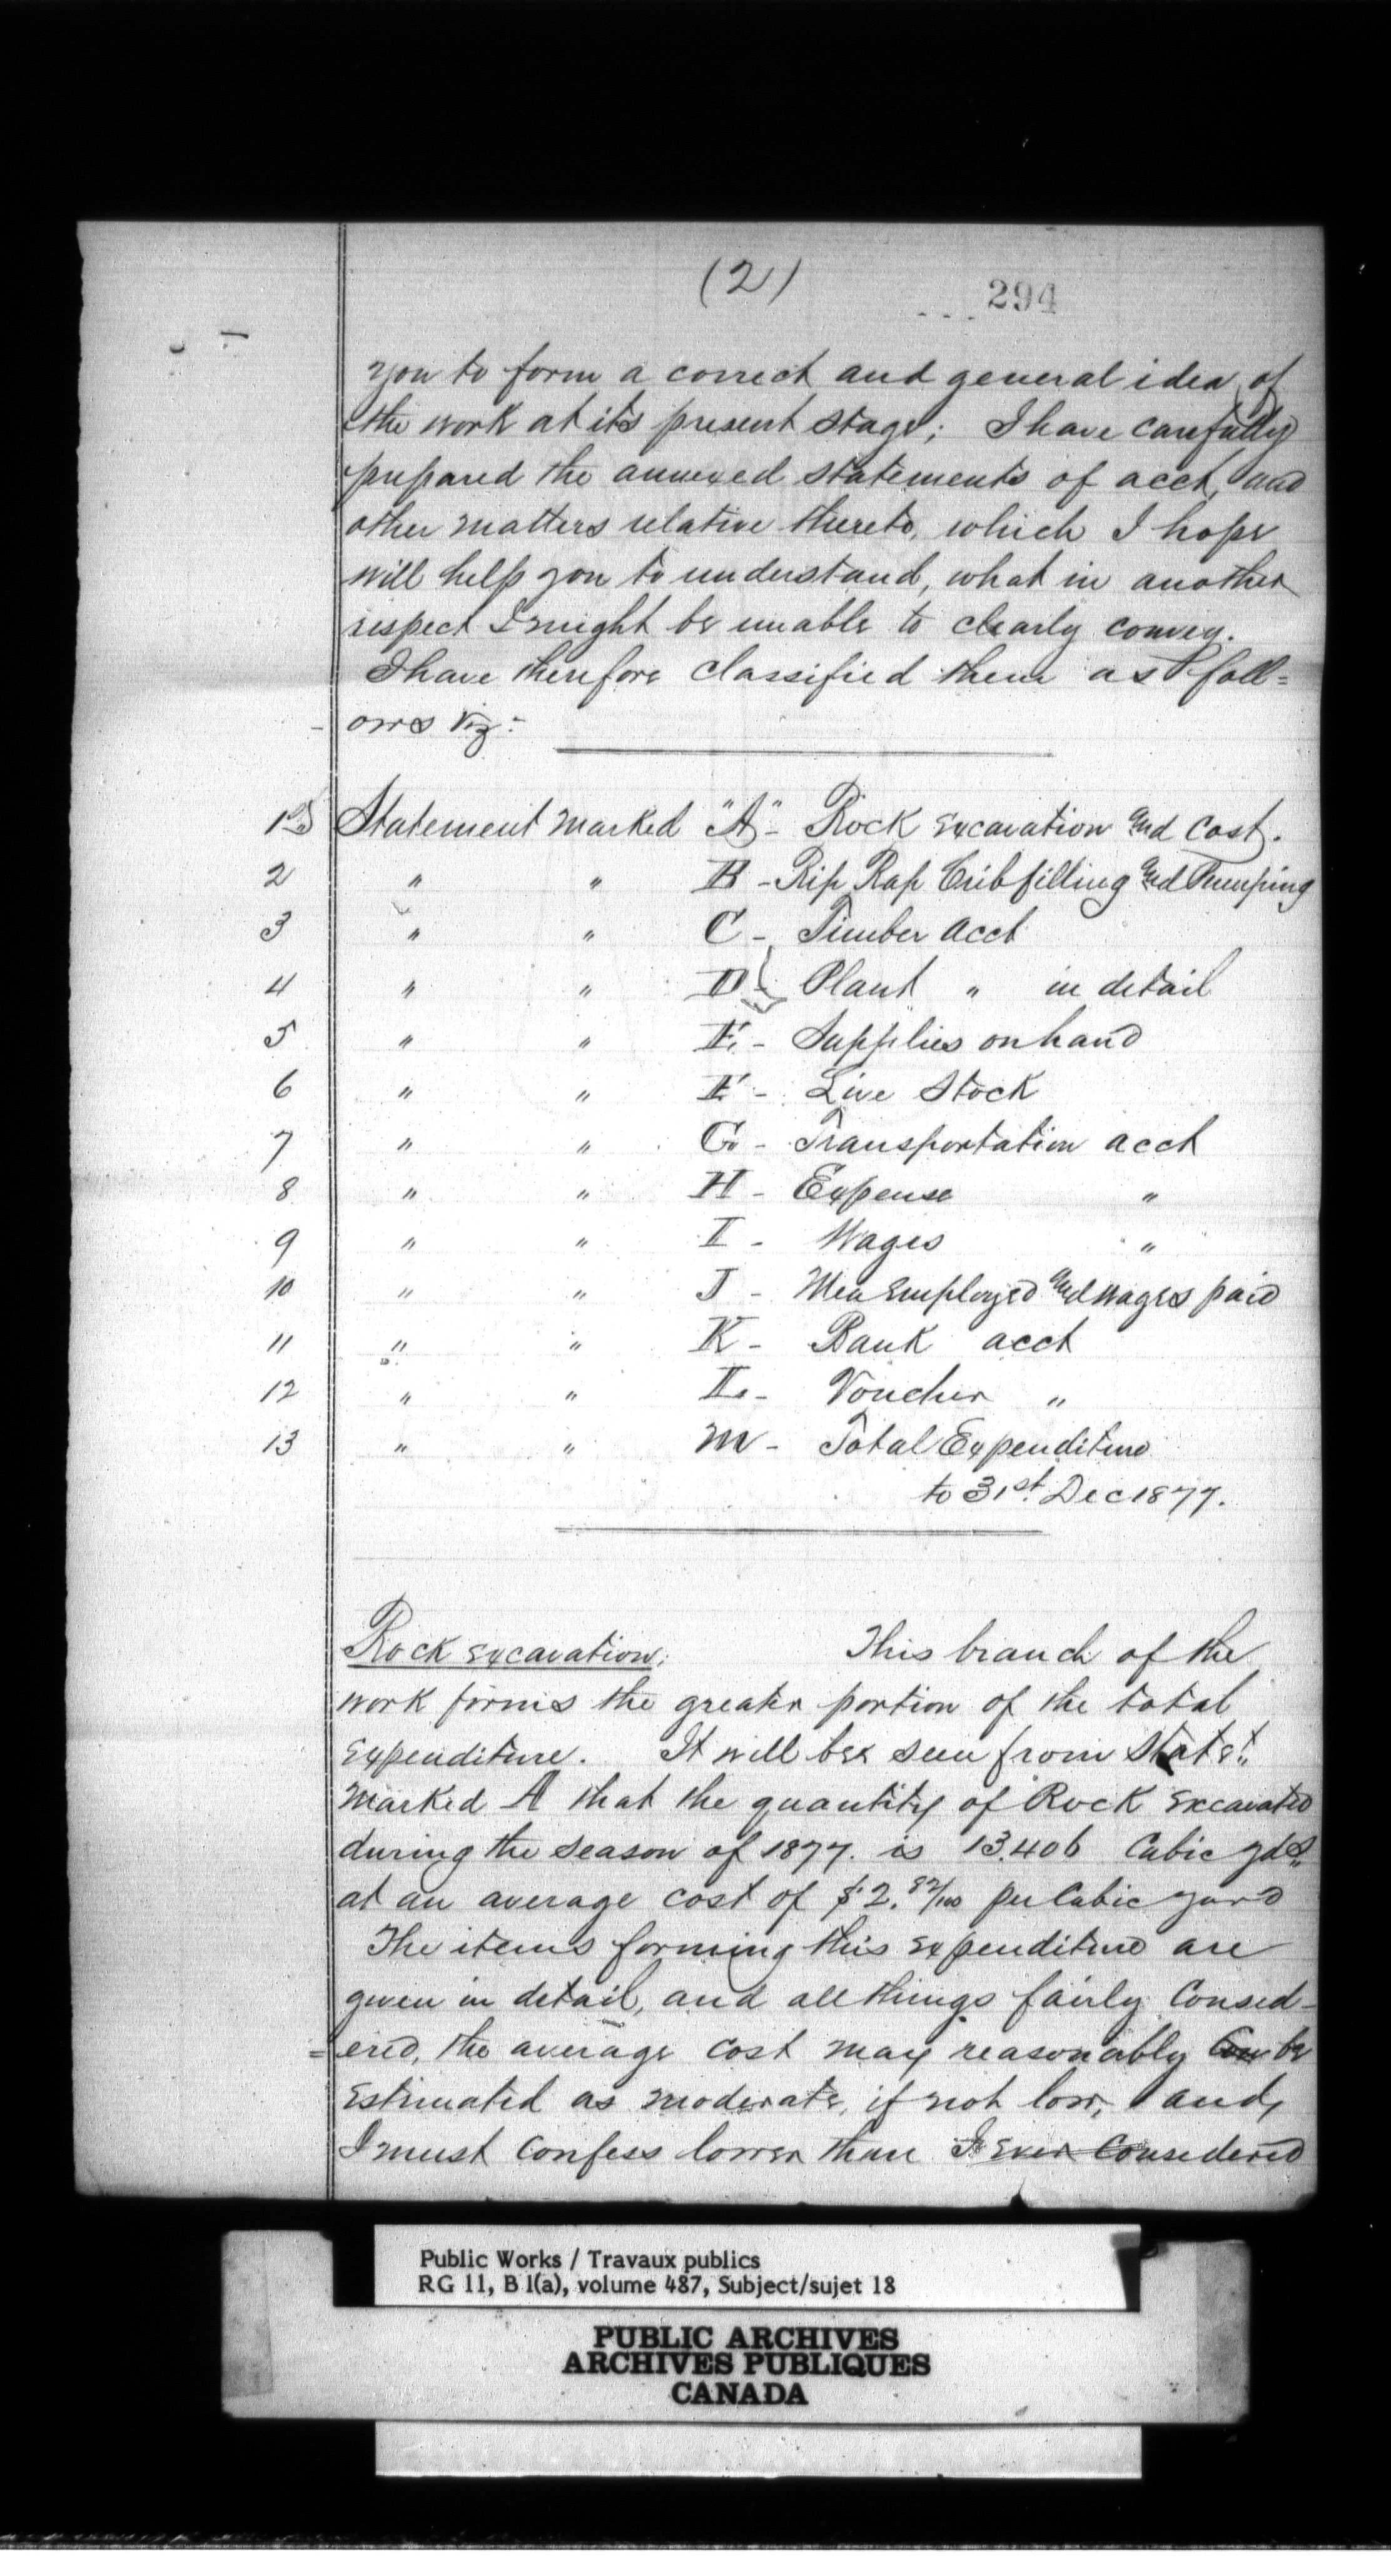 (2)
294
you to form a correct and general idea of
the work at its present stage; I have carefully
prepared the annexed statements of acct, and
other matters relative thereto, which I hope
will help you to understand, what in another
respect I might be unable to clearly convey.
I have therefore classified them as foll=
ows viz:-
1st Statement marked "A" - Rock Excavation and Cost.
2 " " B - Rip Rap Cribfilling and Pumping
3 " " C - Timber Acct
4 " " D - Plant " in detail
5 " " E - Supplies on hand
6 " " F - Live Stock
7 " " G - Transportation acct
8 " " H - Expense "
9 " " I - Wages "
10 " " J - Men Employed and Wages paid
11 " " K - Bank acct
12 " " L - Voucher "
13 " " M - Total Expenditure
to 31st Dec 1877.
Rock Excavation. This branch of the
work forms the greater portion of the total
Expenditure. It will be seen from Statet.
Marked A that the quantity of Rock Excavated
during the season of 1877. is 13.406 Cubic yds
at an average cost of $2. 82/100 per Cubic yard
The items forming this Expenditure are
given in detail, and all things fairly Consed-
=ered, the average cost may reasonably be
Estimated as moderate, if not low, and,
I must Confess lower than I Ever Consedered
Public Works / Travaux publics
RG 11, B 1(a), volume 487, Subject/sujet 18
PUBLIC ARCHIVES
ARCHIVES PUBLIQUES
CANADA